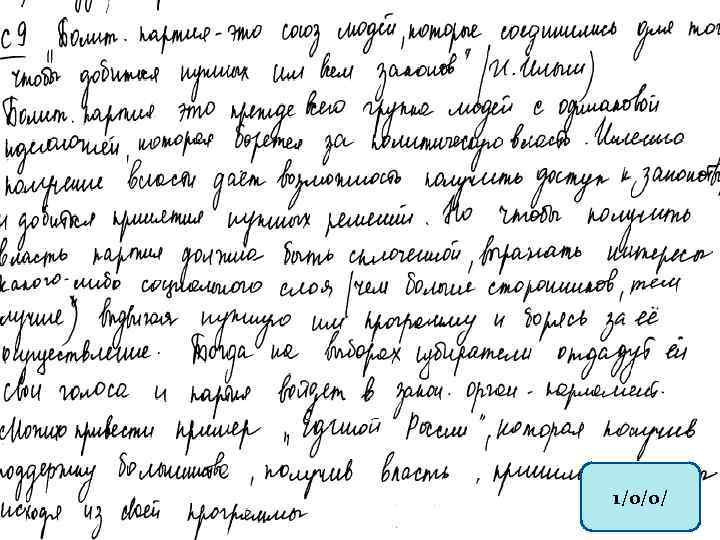 С9 "Полит. партия - это союз людей, которые соединились для того
чтобы добиться нужных им всем законов" (И. Ильин)
Полит. партия это прежде всего группа людей с одинаковой
идеологией, которая борется за политическую власть. Именно
получение власти даёт возможность получить доступ к законотв
и добиться принятия нужных решений. Но чтобы получить
власть партия должна быть сплоченной, выражать интересы
какого-либо социального слоя (чем больше сторонников, тем
лучше) выдвигая нужную им программу и борясь за её
осуществление. Тогда на выборах избиратели отдадут ей
свои голоса и партия войдет в закон. орган - парламент.
Можно привести пример "Единой России", которая получив
поддержку большинства, получив власть,
исходя из своей программы
1/0/0/